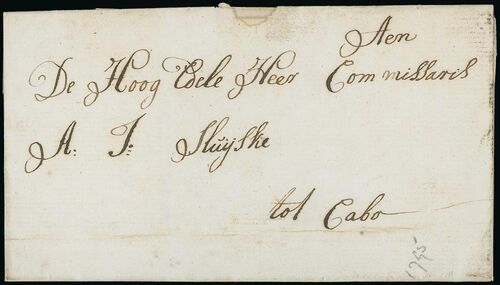 Aen
De Hoog Edele Heer Commissaris
A: J: Sluijske
tot Cabo
1795